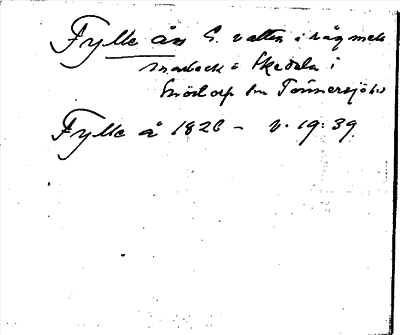 Fylle ån S. vatten i råg mell
Marbeck o Skedala i
Snöstorp sn Tönnersjö hd
Fylle å 1826 - v. 19:39.